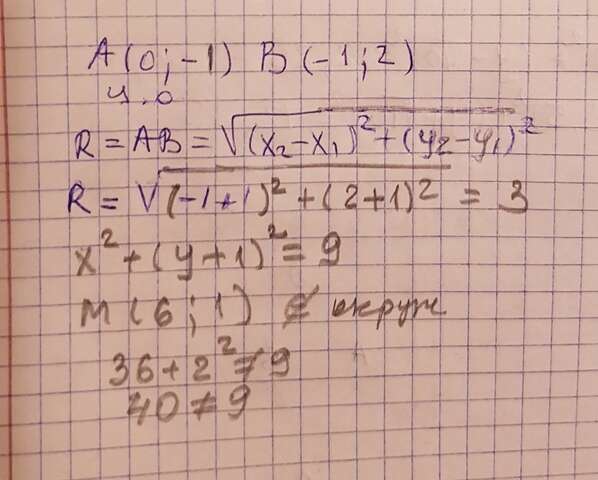 A(0;-1) B(-1;2)
ц.о
R = AB = √(x₂-x₁)²+(y₂-y₁)²
R = √(-1+1)²+(2+1)² = 3
x²+(y+1)²=9
M(6;1) ∉ окруж
36+2²≠9
40≠9